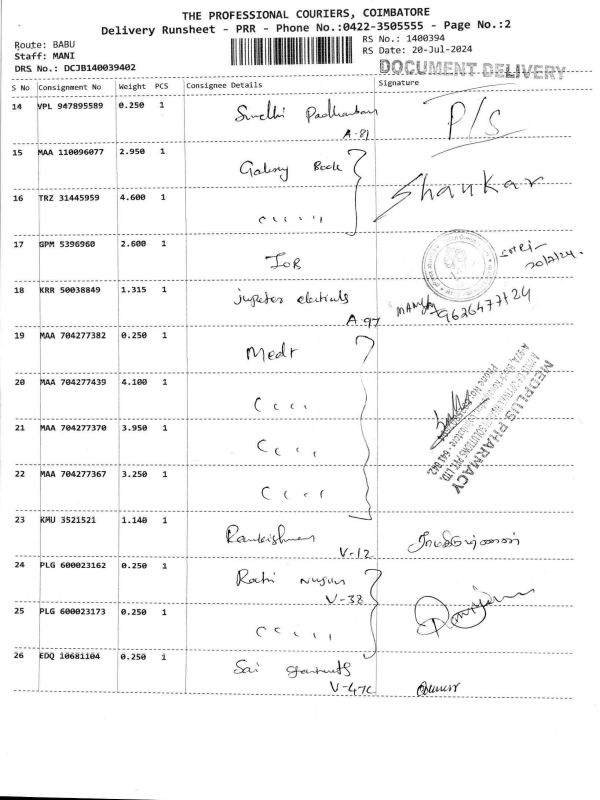 THE PROFESSIONAL COURIERS, COIMBATORE
Delivery Runsheet - PRR - Phone No.:0422-3505555 - Page No.:2
Route: BABU
Staff: MANI
DRS No.: DCJB140039402
RS No.: 1400394
RS Date: 20-Jul-2024
DOCUMENT DELIVERY
S No Consignment No Weight PCS Consignee Details Signature
14 VPL 947895589 0.250 1
A-81
P/S
15 MAA 110096077 2.950 1 Galaxy Book
Shankar
16 TRZ 31445959 4.600 1
17 GPM 5396960 2.600 1 IOB
20/7/24
18 KRR 50038849 1.315 1 jupeter
A-97
9626477124
19 MAA 704277382 0.250 1 Med+
20 MAA 704277439 4.100 1
21 MAA 704277370 3.950 1
22 MAA 704277367 3.250 1
MEDPLUS PHARMACY
23 KMU 3521521 1.140 1
V-12
24 PLG 600023162 0.250 1 Rathi
V-38
25 PLG 600023173 0.250 1
26 EDQ 10681104 0.250 1 Sai
V-47C